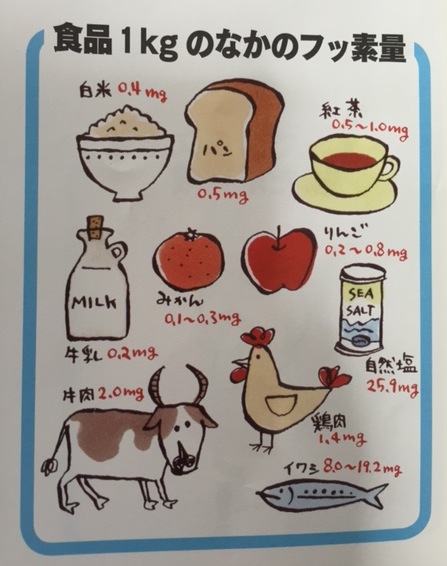 食品1kgのなかのフッ素量
白米 0.4mg
パン
0.5mg
紅茶
0.5〜1.0mg
MILK
牛乳 0.2mg
みかん
0.1〜0.3mg
りんご
0.2〜0.8mg
SEA
SALT
自然塩
25.9mg
牛肉 2.0mg
鶏肉
1.4mg
イワシ 8.0〜19.2mg